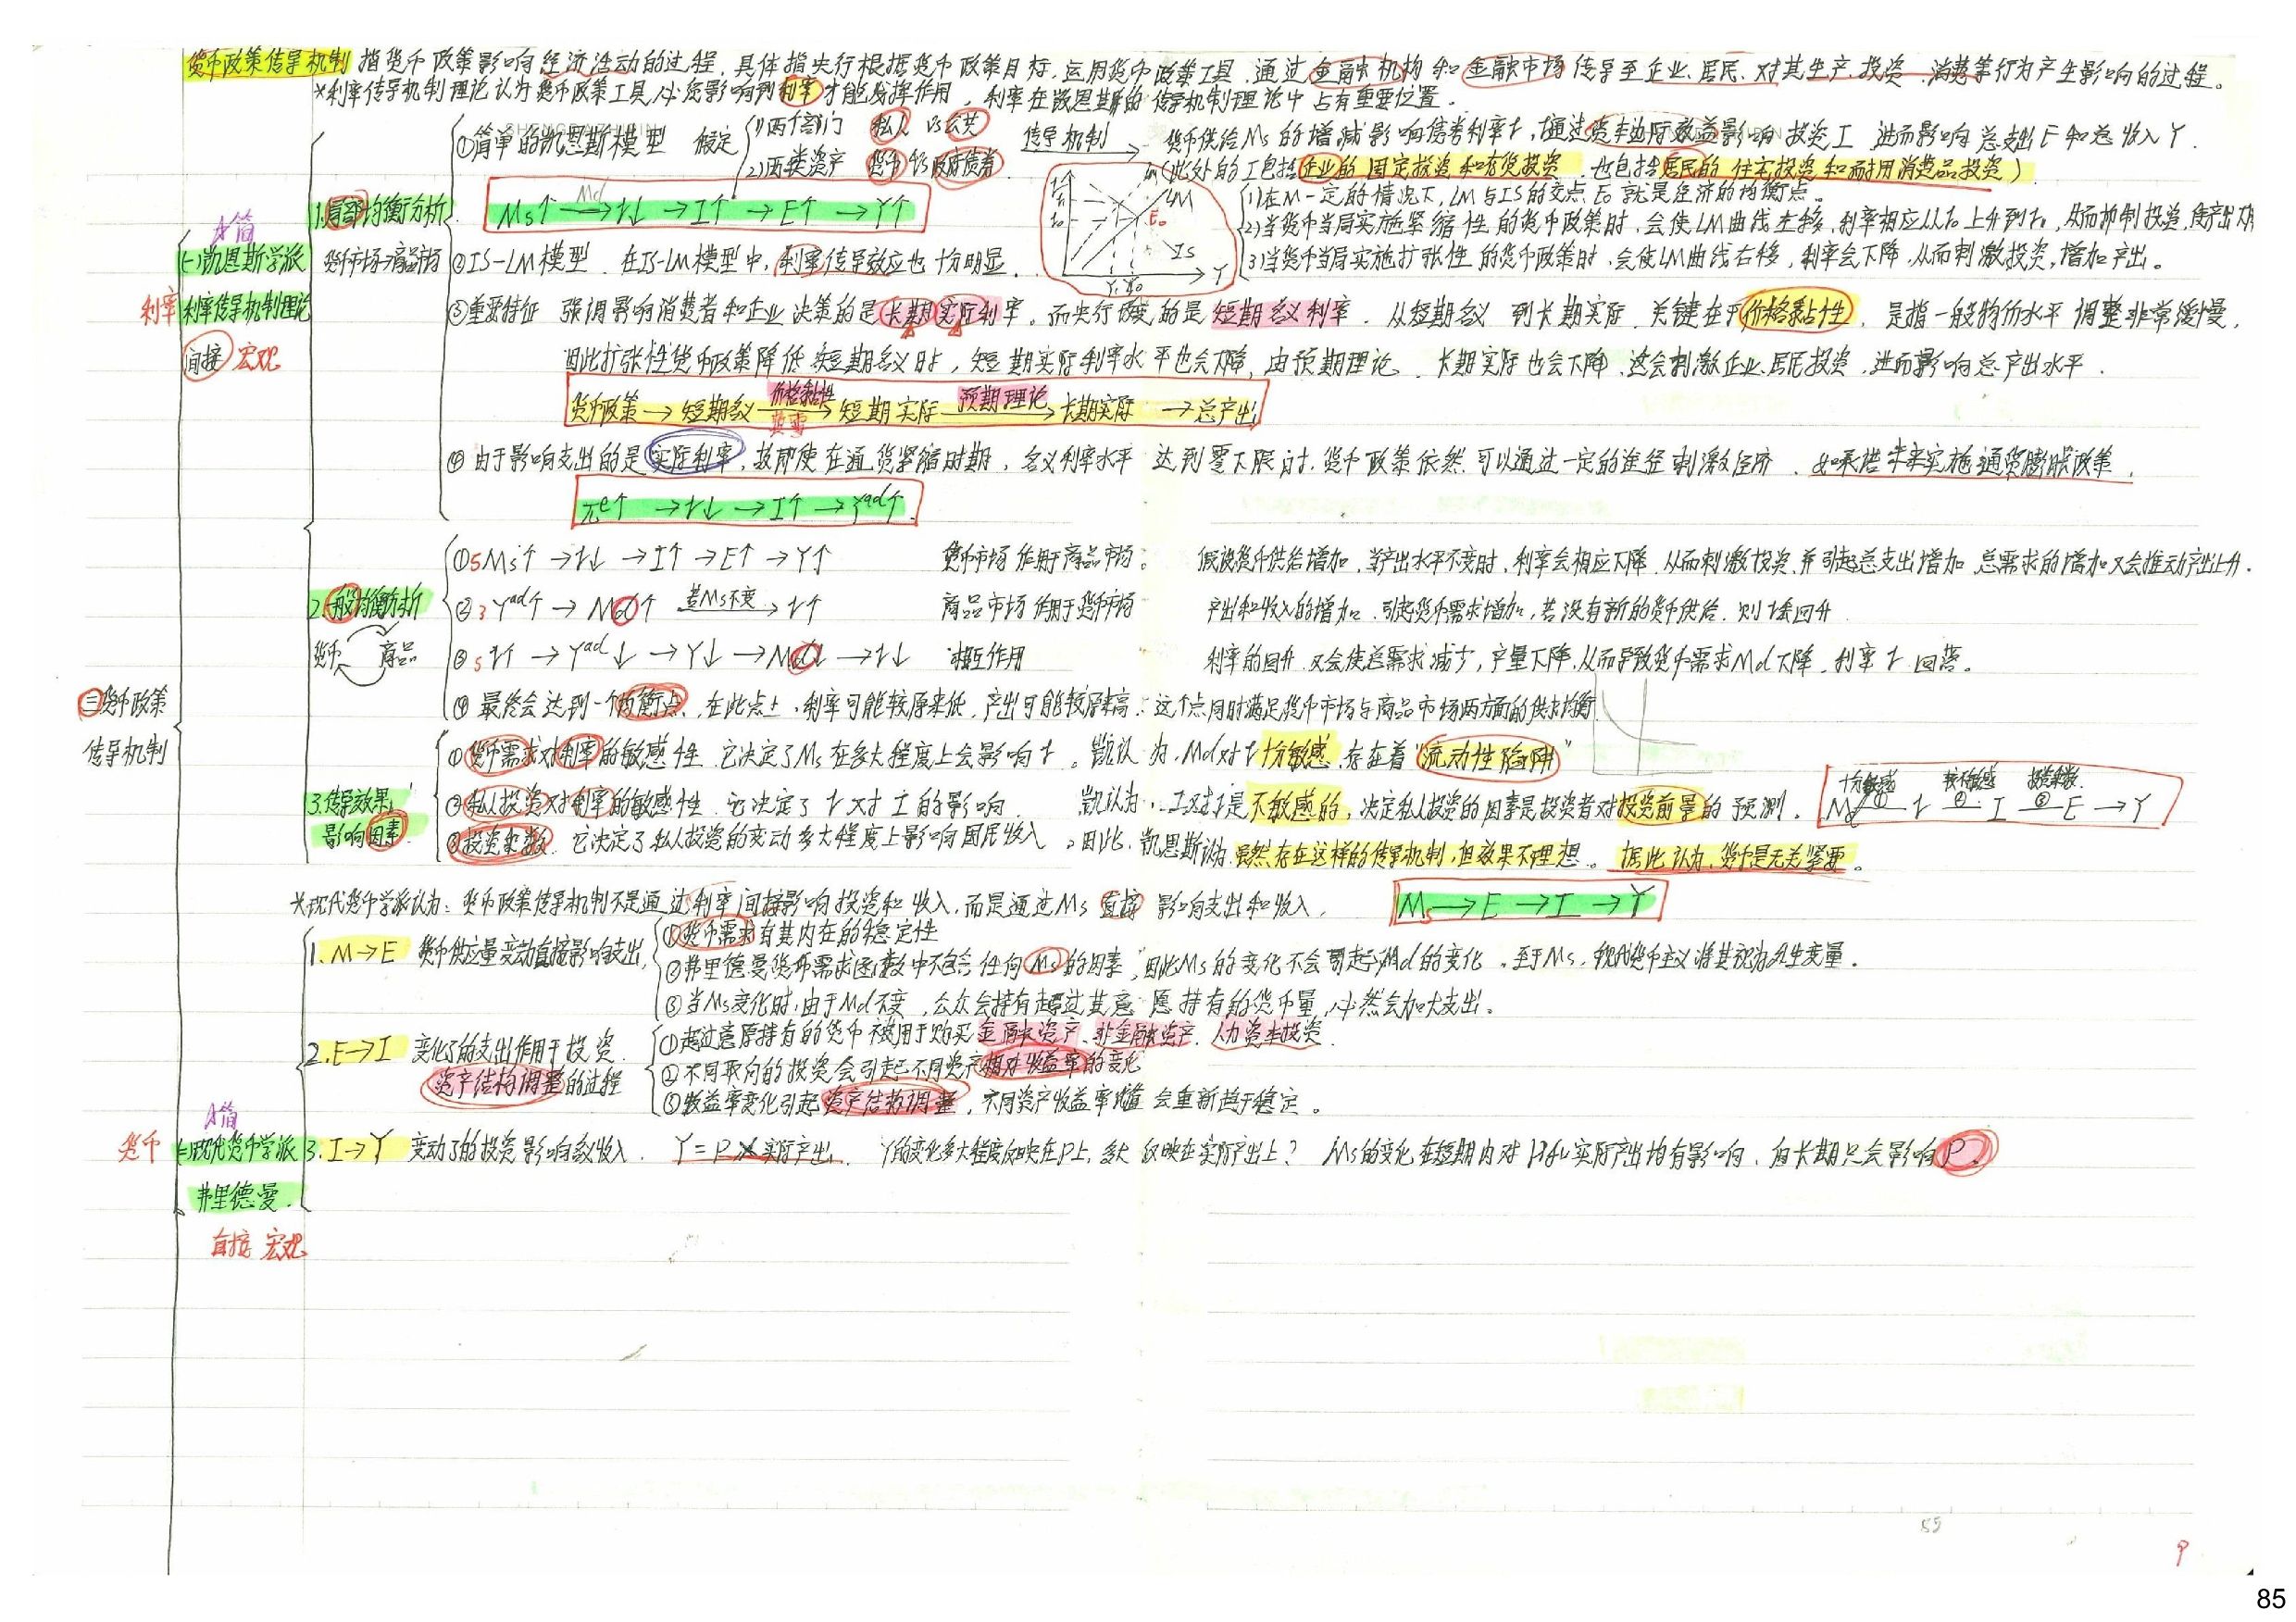 货币政策传导机制 指货币政策影响经济活动的过程，具体指央行根据货币政策目标，运用货币政策工具，通过金融机构和金融市场传导至企业、居民，对其生产、投资、消费等行为产生影响的过程。
*利率传导机制理论认为货币政策工具必须影响到利率才能发挥作用，利率在凯恩斯的传导机制理论中占有重要位置。
三货币政策
传导机制
利率
A简
(一)凯恩斯学派
利率传导机制理论
间接 宏观
1.局部均衡分析
货币市场→商品市场
①简单的凯恩斯模型 假定
1)两个部门 私人 vs 公共
2)两类资产 货币 vs 政府债券
传导机制
货币供给Ms的增减影响债券利率r，通过资本边际效益影响投资I 进而影响总支出E和总收入Y.
(此处的I包括企业的固定投资和存货投资 也包括居民的住宅投资和耐用消费品投资)
Ms↑ Md→ r↓ →I↑ →E↑ →Y↑
②IS-LM模型 在IS-LM模型中，利率传导效应也十分明显.
LM
E0
IS
Y
Y1 Y0
(1)在M一定的情况下，LM与IS的交点E0就是经济的均衡点。
(2)当货币当局实施紧缩性的货币政策时，会使LM曲线左移，利率相应从r0上升到r1，从而抑制投资，使产出下降
(3)当货币当局实施扩张性的货币政策时，会使LM曲线右移，利率会下降，从而刺激投资，增加产出。
③重要特征 强调影响消费者和企业决策的是长期实际利率。而央行改变的是短期名义利率. 从短期名义 到长期实际 关键在于价格黏性，是指一般物价水平调整非常缓慢，
因此扩张性货币政策降低短期名义时，短期实际利率水平也会下降，由预期理论，长期实际也会下降，这会刺激企业、居民投资，进而影响总产出水平.
货币政策→短期名义 价格黏性 费雪 →短期实际 预期理论 →长期实际 →总产出
④由于影响支出的是实际利率，故即使在通货紧缩时期，名义利率水平 达到零下限时，货币政策依然可以通过一定的途径刺激经济. 如承诺未来实施通货膨胀政策.
πe↑ →r↓ →I↑ →Yad↑.
2.一般均衡分析
货币 商品
①Ms↑ →r↓ →I↑ →E↑ →Y↑ 货币市场作用于商品市场： 假设货币供给增加，当产出水平不变时，利率会相应下降，从而刺激投资，并引起总支出增加 总需求的增加又会推动产出上升.
②Yad↑ → Md↑ 若Ms不变→ r↑ 商品市场作用于货币市场 产出和收入的增加，引起货币需求增加，若没有新的货币供给，则r会回升
③r↑ →Yad↓ →Y↓ →Md↓ →r↓ 相互作用 利率的回升，又会使总需求减少，产量下降，从而导致货币需求Md下降，利率r回落。
④最终会达到一个均衡点，在此点上，利率可能较原来低，产出可能较原来高：这个点同时满足货币市场与商品市场两方面的供求均衡
3.传导效果
影响因素
①货币需求对利率的敏感性，它决定了Ms在多大程度上会影响r。凯认为，Md对r十分敏感，存在着“流动性陷阱”
②私人投资对利率的敏感性，它决定了r对I的影响. 凯认为，I对r是不敏感的，决定私人投资的因素是投资者对投资前景的预测.
③投资乘数，它决定了私人投资的变动多大程度上影响国民收入，因此，凯恩斯认为虽然存在这样的传导机制，但效果不理想。据此认为，货币是无关紧要。
十分敏感 较不敏感 投资乘数
Md ① r ② I ③ E →Y
*现代货币学派认为：货币政策传导机制不是通过利率间接影响投资和收入，而是通过Ms直接影响支出和收入.
Ms→E→I→Y
货币
A简
(二)现代货币学派
弗里德曼.
直接 宏观
1. M→E 货币供应量变动直接影响支出
①货币需求有其内在的稳定性
②弗里德曼货币需求函数中不包含任何Ms的因素，因此Ms的变化不会引起Md的变化. 至于Ms，现代货币主义将其视为外生变量.
③当Ms变化时，由于Md不变，公众会持有超过其意愿持有的货币量，必然会加大支出。
2.E→I 变化了的支出作用于投资
资产结构调整的过程
①超过意愿持有的货币被用于购买金融资产、非金融资产、人力资本投资
②不同取向的投资会引起不同资产相对收益率的变化
③收益率变化引起资产结构调整，不同资产收益率比值会重新趋于稳定。
3.I→Y 变动了的投资影响名义收入. Y=P×实际产出. Y的变化多大程度反映在P上，多大反映在实际产出上？ Ms的变化在短期内对P和实际产出均有影响，但长期只会影响P.
85